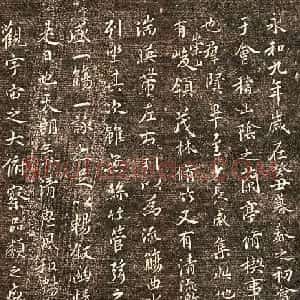 永和九年歲在癸丑暮春之初
于會稽山陰之蘭亭脩禊事
也羣賢畢至少長咸集此地
有崇山峻領茂林脩竹又有清流
湍暎帶左右引以為流觴曲
列坐其次雖無絲竹管弦之
盛一觴一詠亦足以暢敘幽情
是日也天朗氣清惠風和暢
觀宇宙之大俯察品類之盛